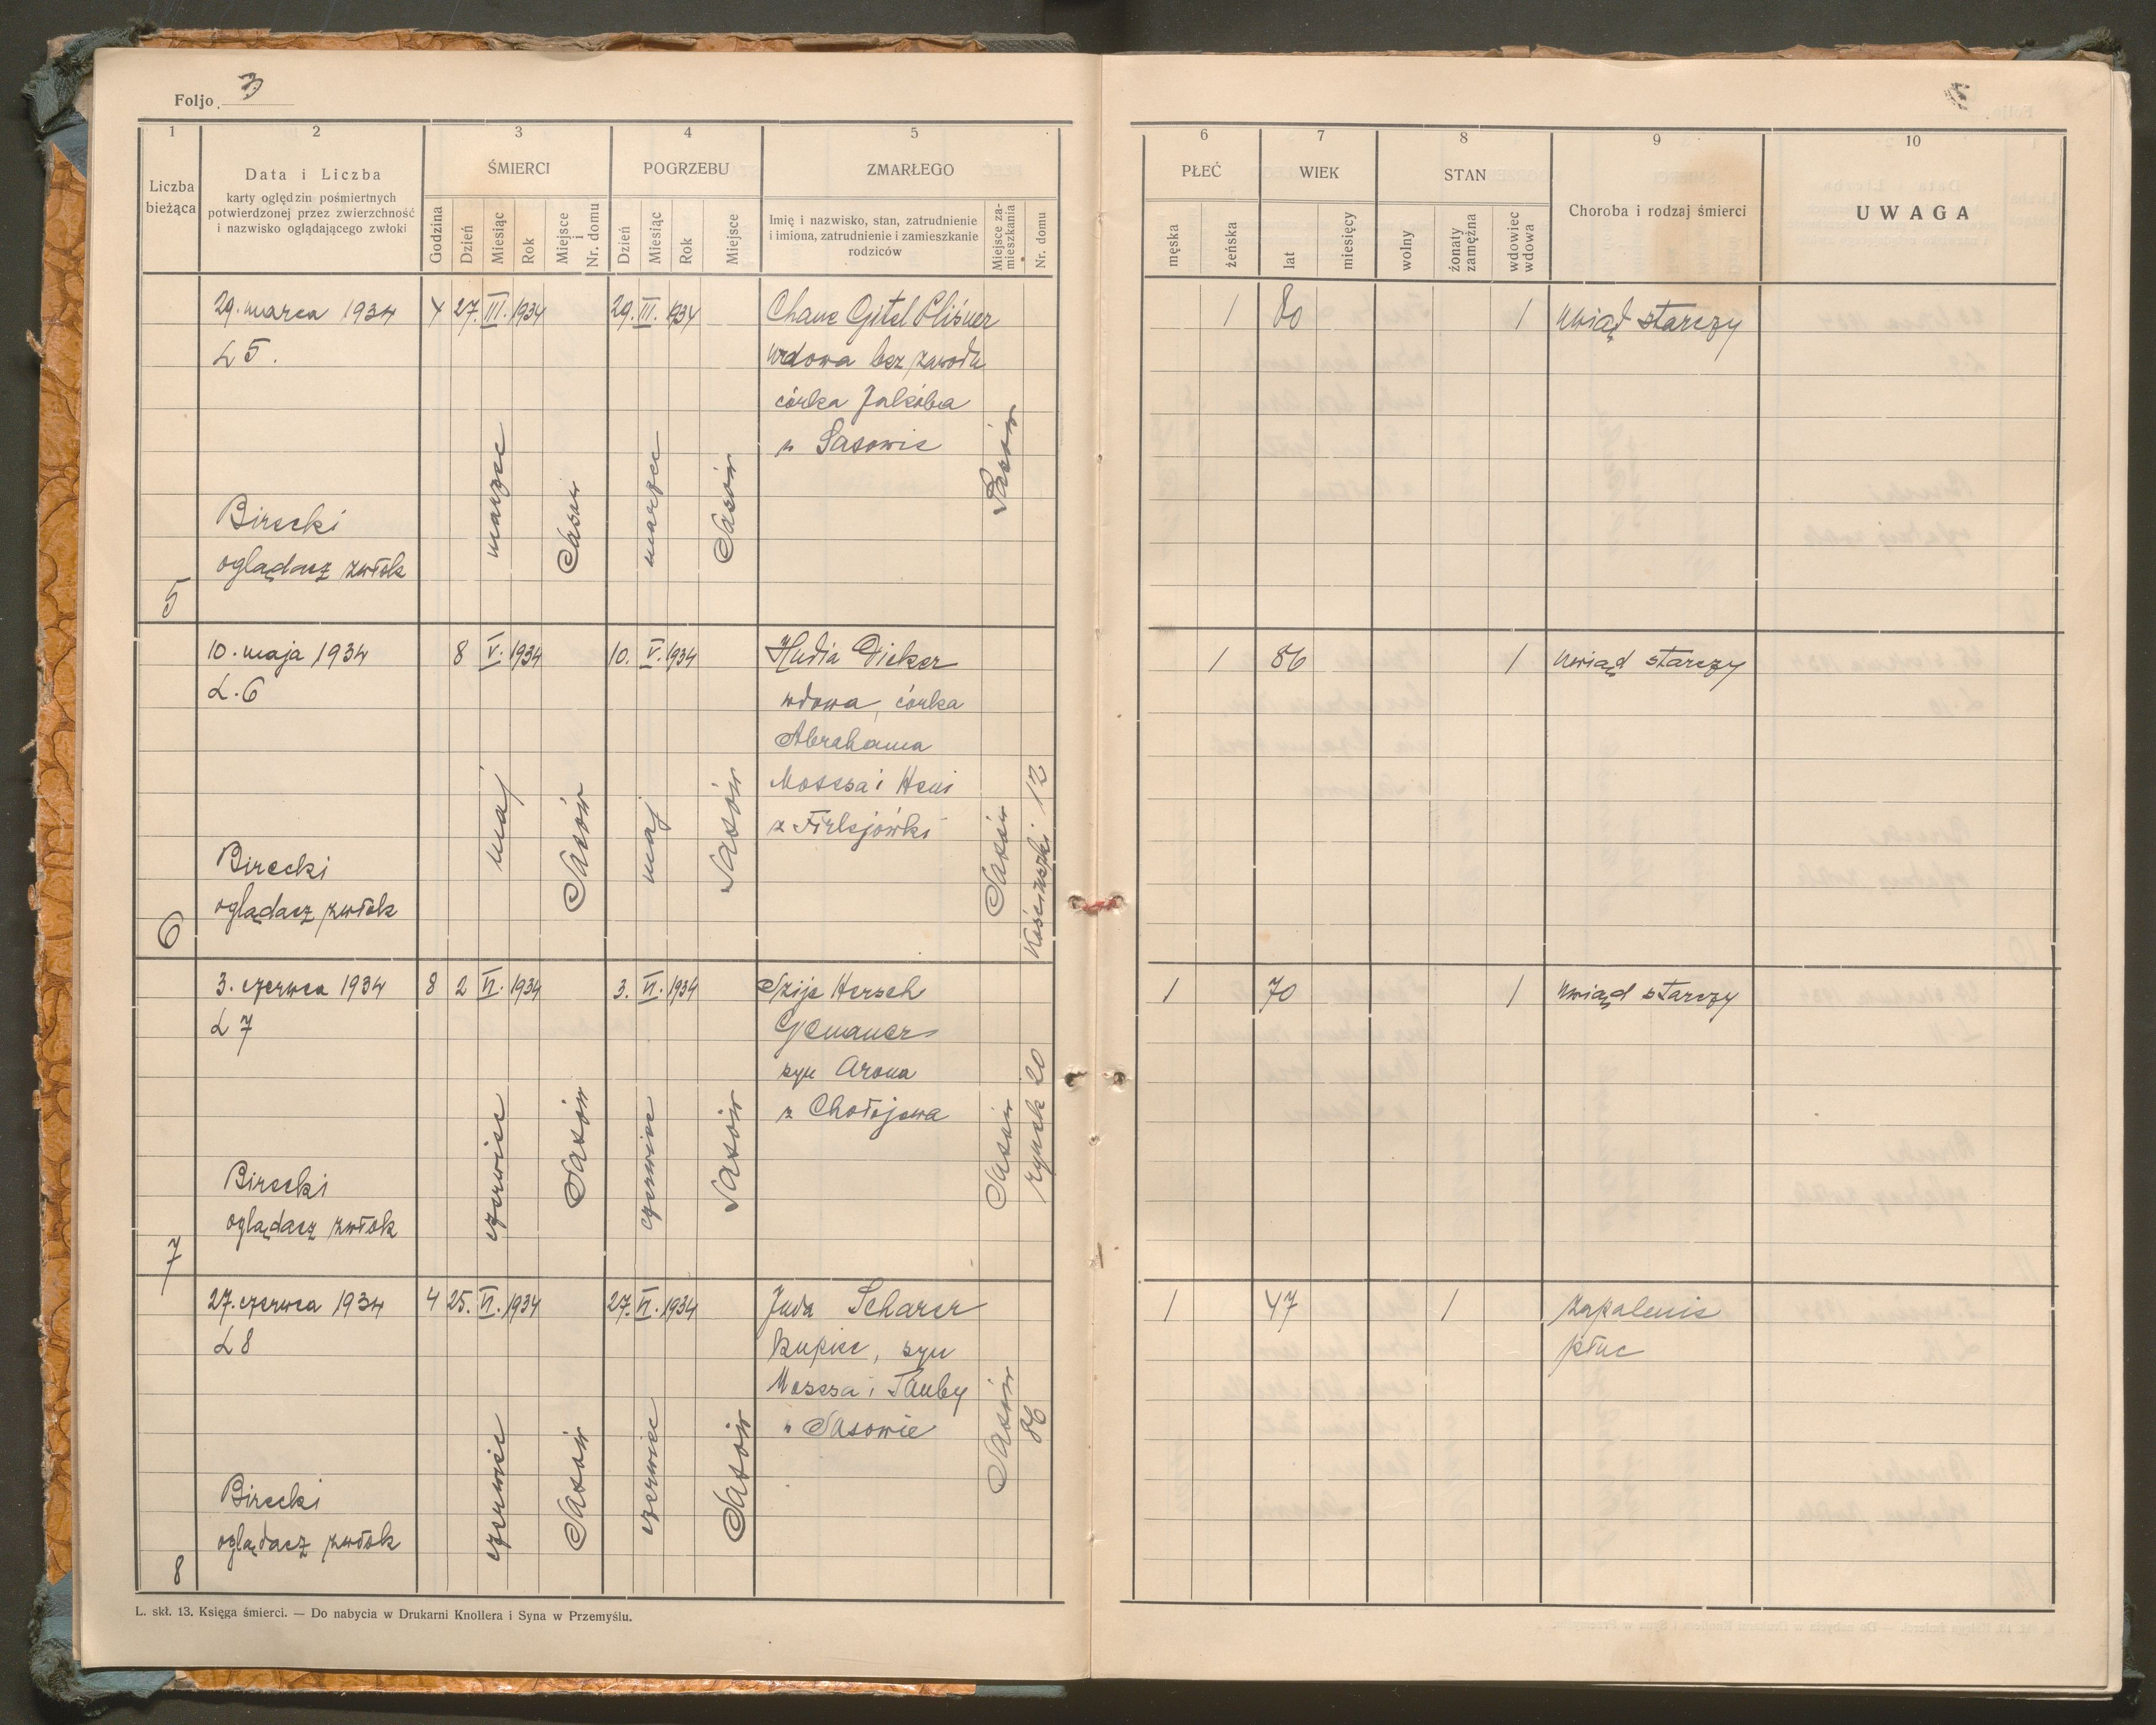 Foljo 3
1 2 3 4 5 6 7 8 9 10
Liczba bieżąca
Data i Liczba
karty oględzin pośmiertnych
potwierdzonej przez zwierzchność
i nazwisko oglądającego zwłoki
ŚMIERCI
Godzina
Dzień
Miesiąc
Rok
Miejsce i Nr. domu
POGRZEBU
Dzień
Miesiąc
Rok
Miejsce
ZMARŁEGO
Imię i nazwisko, stan, zatrudnienie
i imiona, zatrudnienie i zamieszkanie
rodziców
Miejsce zamieszkania
Nr. domu
PŁEĆ
męska
żeńska
WIEK
lat
miesięcy
STAN
wolny
żonaty zamężna
wdowiec wdowa
Choroba i rodzaj śmierci
UWAGA
29. marca 1934 4 27. III. 1934 29. III. 1934 Chane Gitel 1 80 1 uwiąd starczy
Ł 5. wdowa bez zawodu
córka Jakóba
w Sasowie
marzec Sasów marzec Sasów Sasów
Birecki
oglądacz zwłok
5
10. maja 1934 8 V. 1934 10. V. 1934 Hudia Dicker 1 86 1 uwiąd starczy
Ł. 6 wdowa, córka
Abrahama
Mosesa i Heni
z Firlejówki
maj Sasów maj Sasów Sasów Kościuszki 12
Birecki
oglądacz zwłok
6
3. czerwca 1934 8 2 VI. 1934 3. VI. 1934 Hersch 1 70 1 uwiąd starczy
Ł 7
syn Arona
z Chołojowa
czerwiec Sasów czerwiec Sasów Sasów rynek 20
Birecki
oglądacz zwłok
7
27. czerwca 1934 4 25. VI. 1934 27. VI. 1934 Juda Scharer 1 47 1 zapalenie
Ł 8 kupiec, syn płuc
Mosesa i Tauby
w Sasowie
czerwiec Sasów czerwiec Sasów Sasów 86
Birecki
oglądacz zwłok
8
L. skł. 13. Księga śmierci. — Do nabycia w Drukarni Knollera i Syna w Przemyślu.